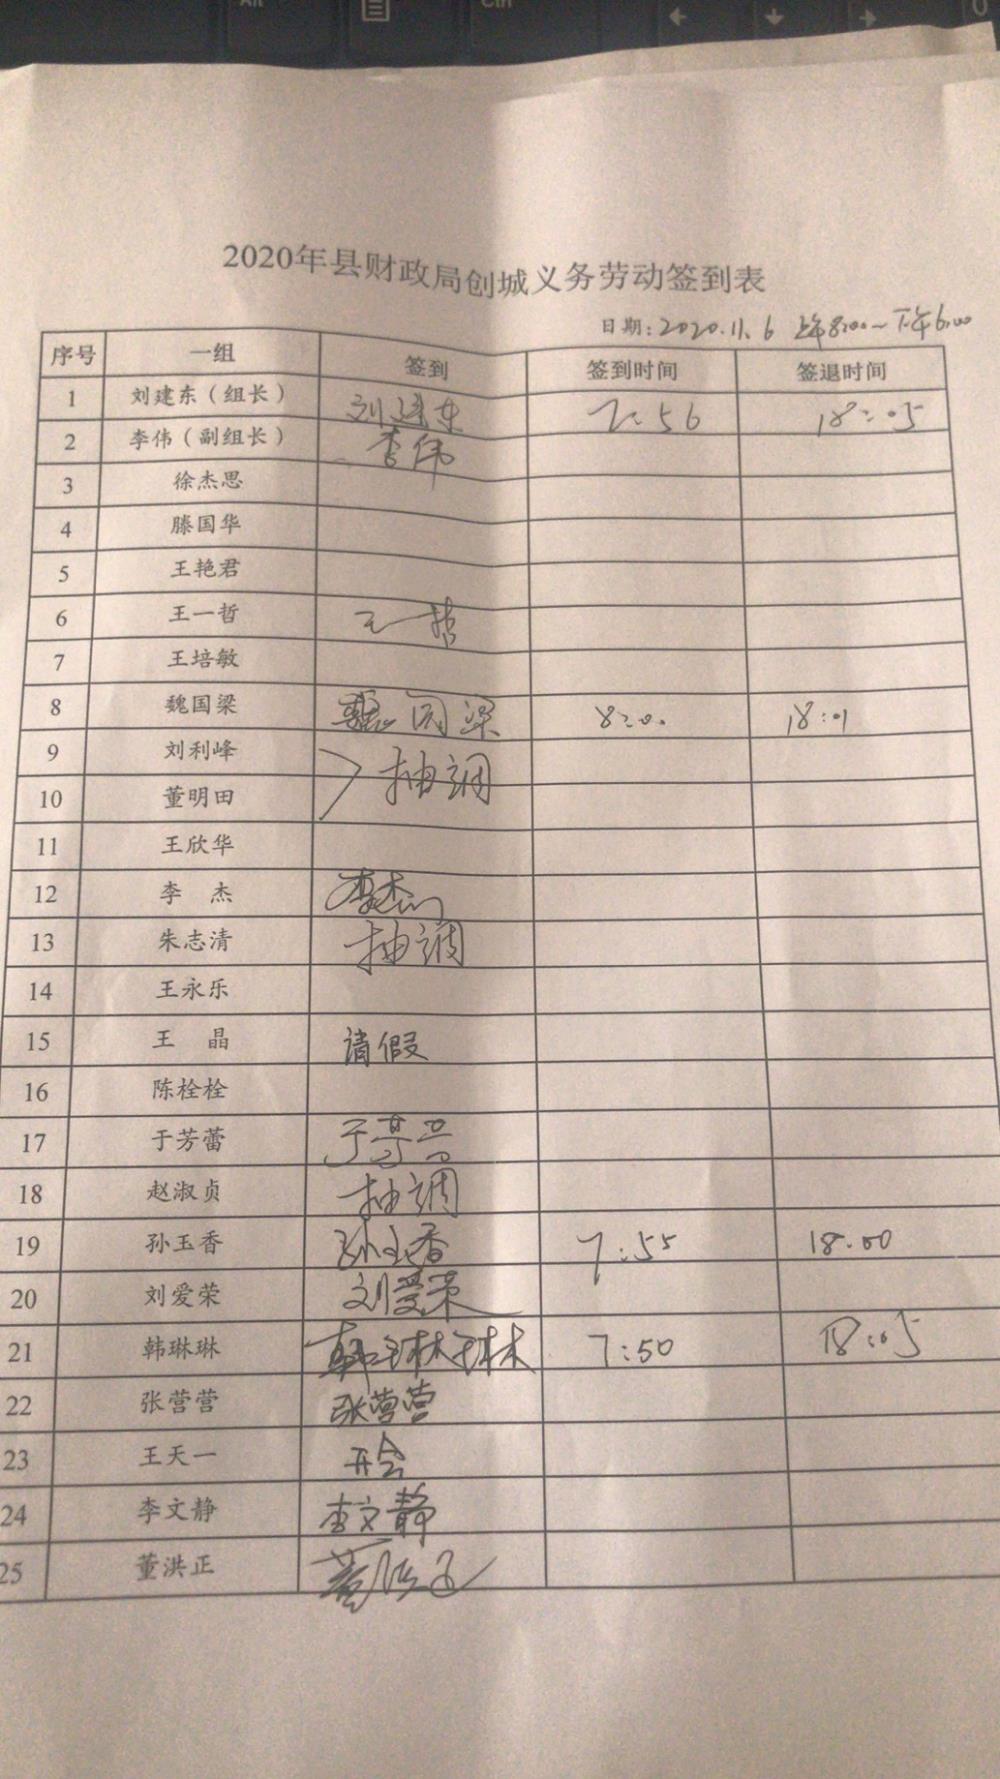 Alt
Ctrl
2020年县财政局创城义务劳动签到表
日期：2020.11.6 上午8:00～下午6:00
序号 一组 签到 签到时间 签退时间
1 刘建东（组长） 刘建东 7:56 18:05
2 李伟（副组长） 李伟
3 徐杰思
4 滕国华
5 王艳君
6 王一哲 王一哲
7 王培敏
8 魏国梁 魏国梁 8:00 18:01
9 刘利峰 抽调
10 董明田
11 王欣华
12 李 杰 李杰
13 朱志清 抽调
14 王永乐
15 王 晶 请假
16 陈栓栓
17 于芳蕾 于芳蕾
18 赵淑贞 抽调
19 孙玉香 孙玉香 7:55 18:00
20 刘爱荣 刘爱荣
21 韩琳琳 韩琳琳 7:50 18:05
22 张营营 张营营
23 王天一 开会
24 李文静 李文静
25 董洪正 董洪正